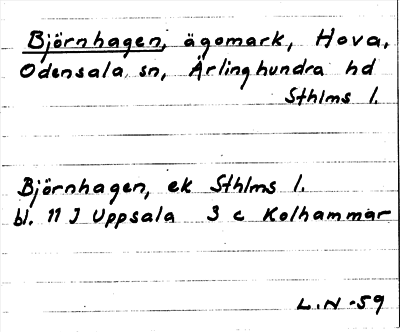 Björnhagen, ägomark, Hova,
Odensala sn, Ärlinghundra hd
Sthlms l.
Björnhagen, ek Sthlms l.
bl. 11 I Uppsala 3 c Kolhammar
L.N -59